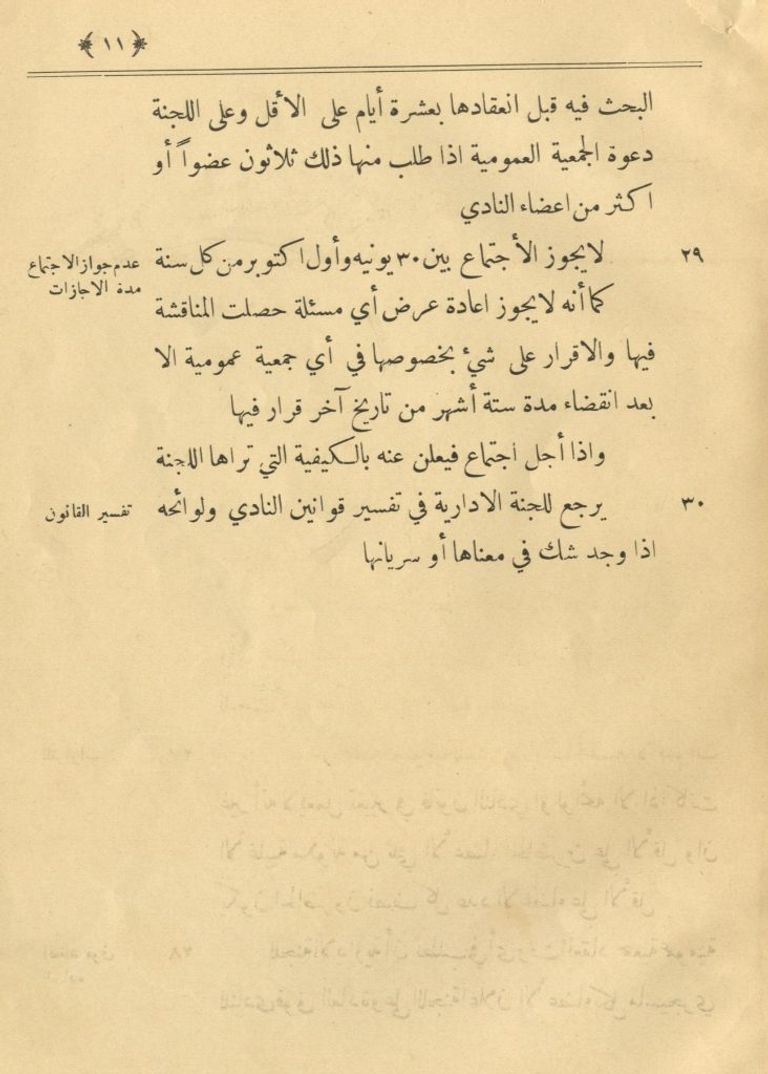 ﴿ ١١ ﴾
البحث فيه قبل انعقادها بعشرة أيام على الأقل وعلى اللجنة
دعوة الجمعية العمومية اذا طلب منها ذلك ثلاثون عضواً أو
اكثر من اعضاء النادي
٢٩ لايجوز الأجتماع بين ٣٠ يونيه وأول اكتوبر من كل سنة
عدم جواز الاجتماع
مدة الاجازات
كما أنه لايجوز اعادة عرض أي مسئلة حصلت المناقشة
فيها والاقرار على شئ بخصوصها في أي جمعية عمومية الا
بعد انقضاء مدة ستة أشهر من تاريخ آخر قرار فيها
واذا أجل اجتماع فيعلن عنه بالكيفية التي تراها اللجنة
٣٠ يرجع للجنة الادارية في تفسير قوانين النادي ولوائحه
تفسير القانون
اذا وجد شك في معناها أو سريانها